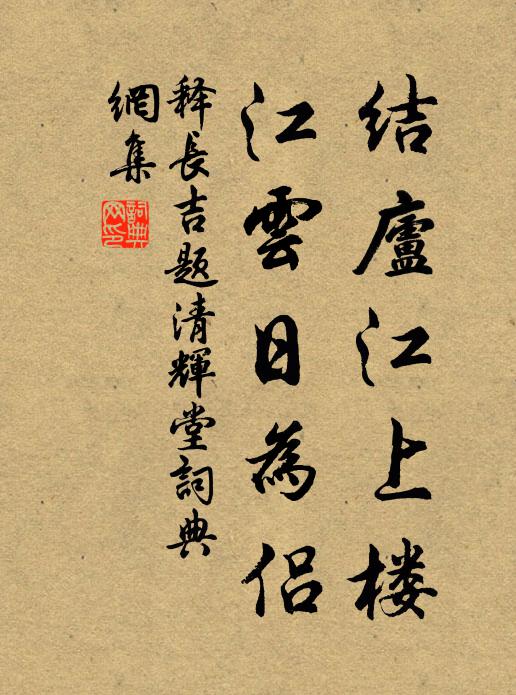 结廬江上楼
江雲日為侣
释長吉题清輝堂詞典
網集
詞典网印